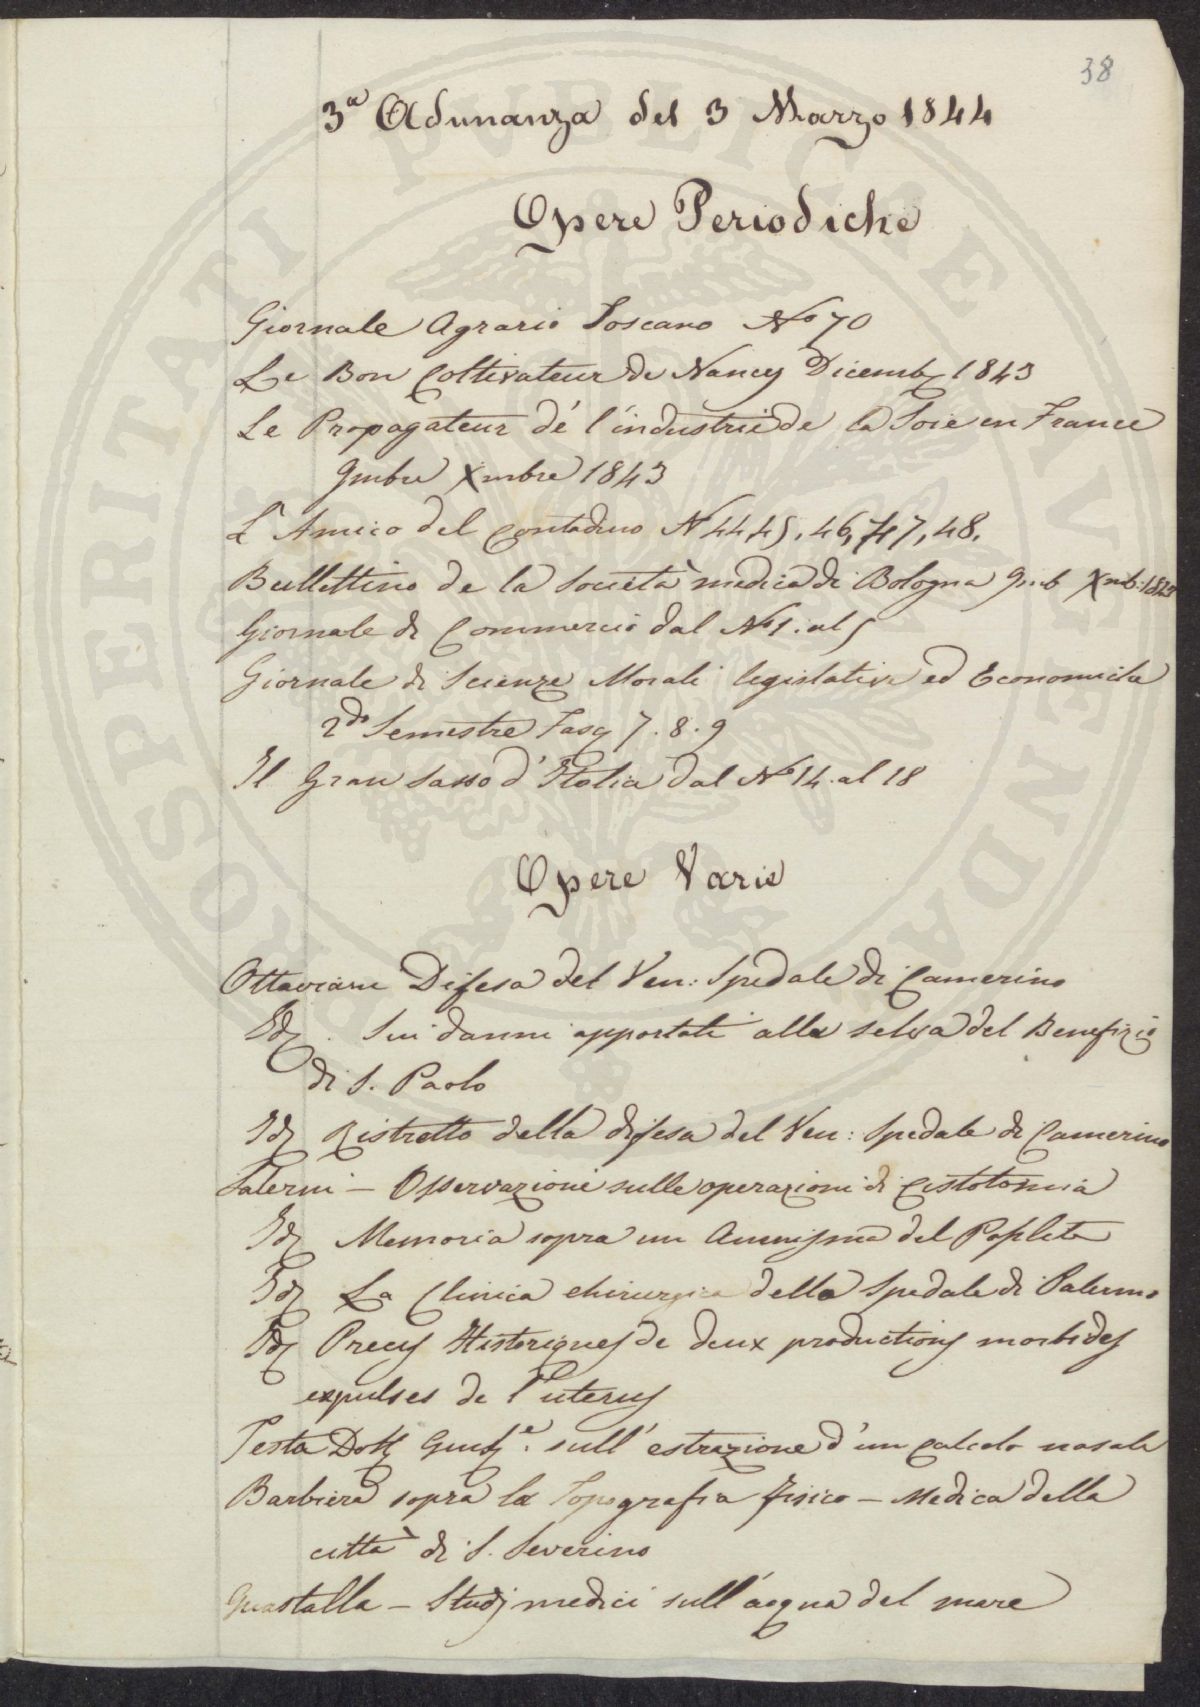 38
3ª Adunanza del 3 Marzo 1844
Opere Periodiche
Giornale Agrario Toscano Nº 70
Le Bon Coltivateur de Nancy Dicemb. 1843
Le Propagateur dé l'industrie de la Soie en France
9mbre Xmbre 1843
L'Amico del Contadino N 44, 45, 46, 47, 48.
Bullettino de la Società medica di Bologna 9mb Xmb: 1843
Giornale di Commercio dal Nº 1. al 5
Giornale di Scienze Morali legislative ed Economiche
2do Semestre Fasc 7. 8. 9
Il Gran Sasso d'Italia dal Nº 14. al 18
Opere Varie
Ottaviani Difesa del Ven: Spedale di Camerino
Id. Sui danni apportati alla selva del Benefizio
di S. Paolo
Id. Ristretto della difesa del Ven: Spedale di Camerino
Salemi - Osservazioni sulle operazioni di Cistotomia
Id. Memoria sopra un Aneurisma del Poplite
Id. La Clinica chirurgica dello Spedale di Palermo
Id. Precis Historiques de deux productions morbides
expulses de l'uterus
Testa Dott Giuse. sull'estrazione d'un Calcolo nasale
Barbiera sopra la Topografia fisico - Medica della
città di S. Severino
Guastalla - Studj medici sull'acqua del mare
PROSPERITATI PUBLICAE AUGENDAE